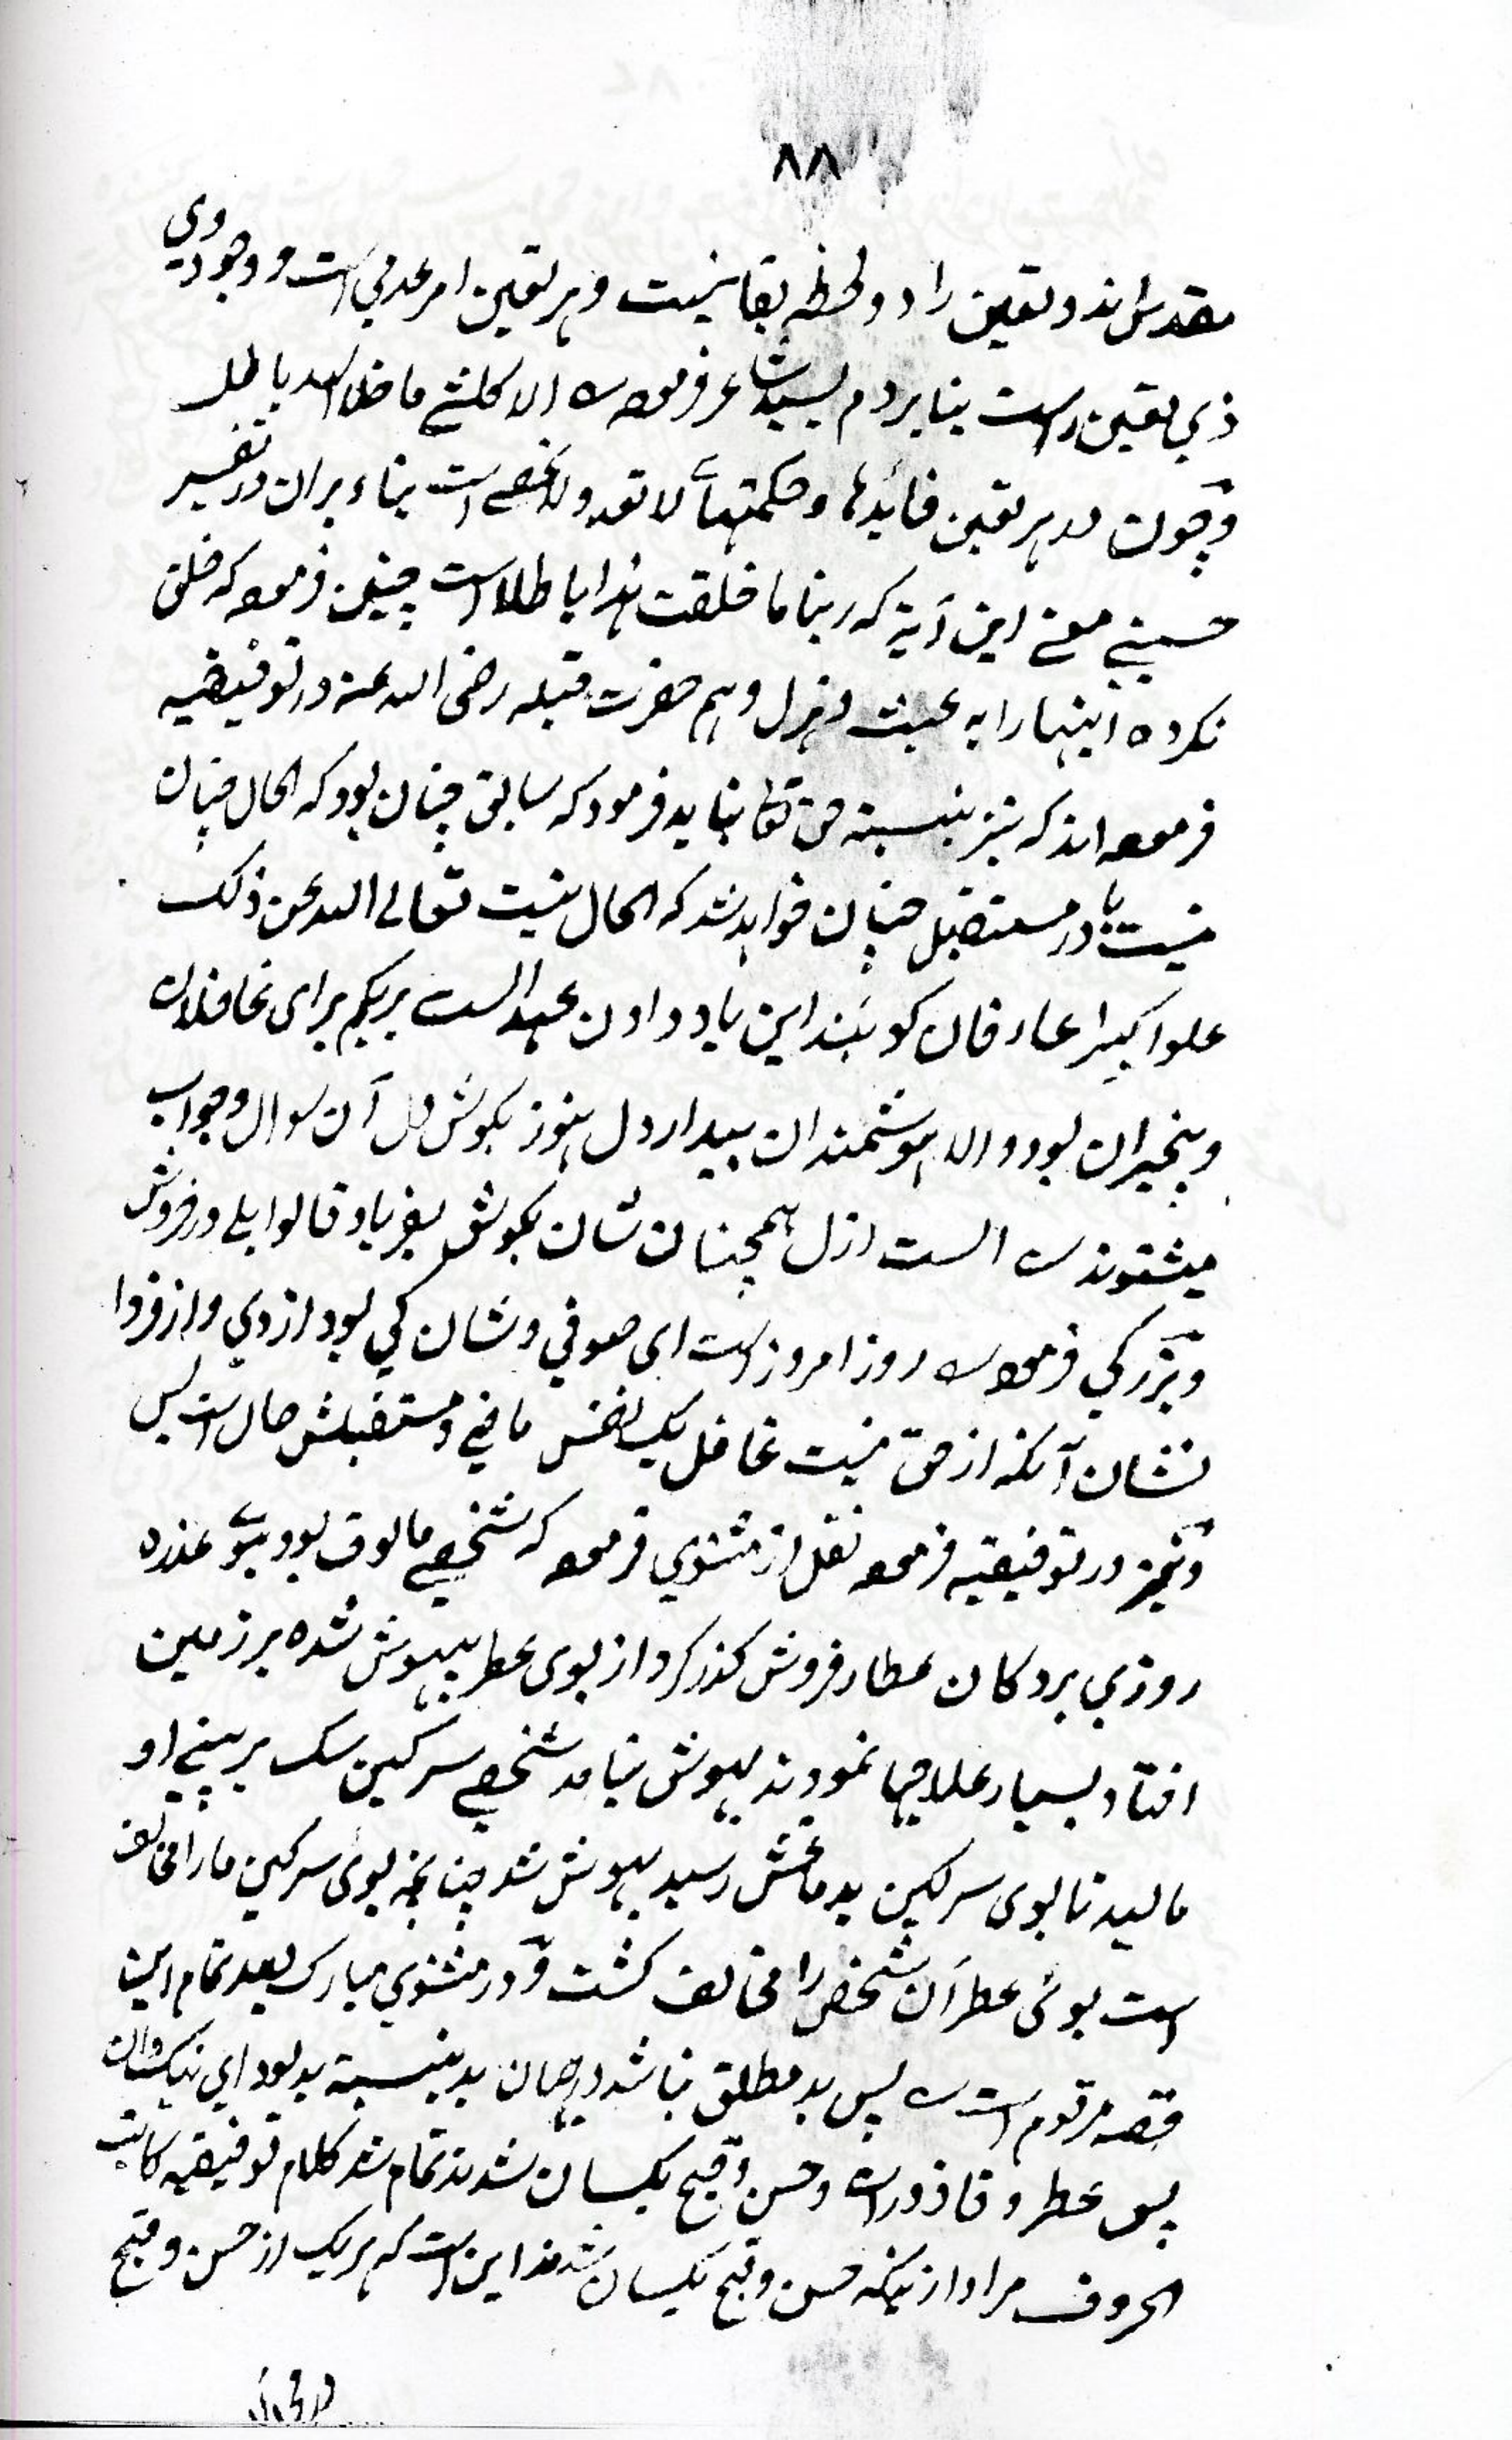 ۸۸
مقدس اند و تعین را دو لحظه بقا نیست و هر تعین امر عدمی است و وجود وی
ذی تعین راست بنا بر دم لبید شاعر فرموده س الا کلشئ ما خلا الله باطل
و چون در هر تعین فائدها و حکمتهای لا تعد ولا تحصے است بناء بران در تفسیر
حسینی معنے این آیة که ربنا ما خلقت هذا باطلا است چنین فرموده که خلق
نکرده اینها را به عبث و هزل و هم حضرت قبله رضی الله عنه در توفیقیه
فرموده اند که نیز بنسبة حق تعا نباید فرمود که سابق چنان بود که الحال چنان
نیست یا در مستقبل چنان خواهد شد که الحال نیست تعالے الله عن ذلک
علوا کبیرا عارفان کویند این یاد دادن عهد الست بربکم برای غافلان
و بیخبران بود و الا هوشمندان بیدار دل هنوز بکوش دل آن سوال و جواب
میشنوند س الست ازل همچنان شان بکوش بفریاد قالوا بلے در خروش
و بزرکی فرموده س روز امروز است ای صوفی و شان کی بود از دی و از فردا
نشان آنکه از حق نیست غافل یک نفس ماضی و مستقبلش حال است بس
و نیز در توفیقیه فرموده نقل از مثنوی فرموده که شخصے مالوف بود ببوی عذره
روزی بر دکان عطار فروش کذر کرد از بوی عطر بیهوش شده بر زمین
افتاد بسیار علاجها نمودند بهوش نیامد شخصے سرکین سک بر بینے او
مالید تا بوی سرکین بدماغش رسید بهوش شد چنانچه بوی سرکین ما را مخالف
است بوئی عطر آن شخص را مخالف کشت و در مثنوی مبارک بعد تمام این
قصه مرقوم است س پس بد مطلق نباشد در جهان بد بنسبة بد بود ای نیکوان
پس عطر و قاذورات و حسن و قبح یکسان شدند تمام شد کلام توفیقیه کاتب
الحروف مراد از نیکه حسن و قبح یکسان شدند این است که هر یک از حسن و قبح